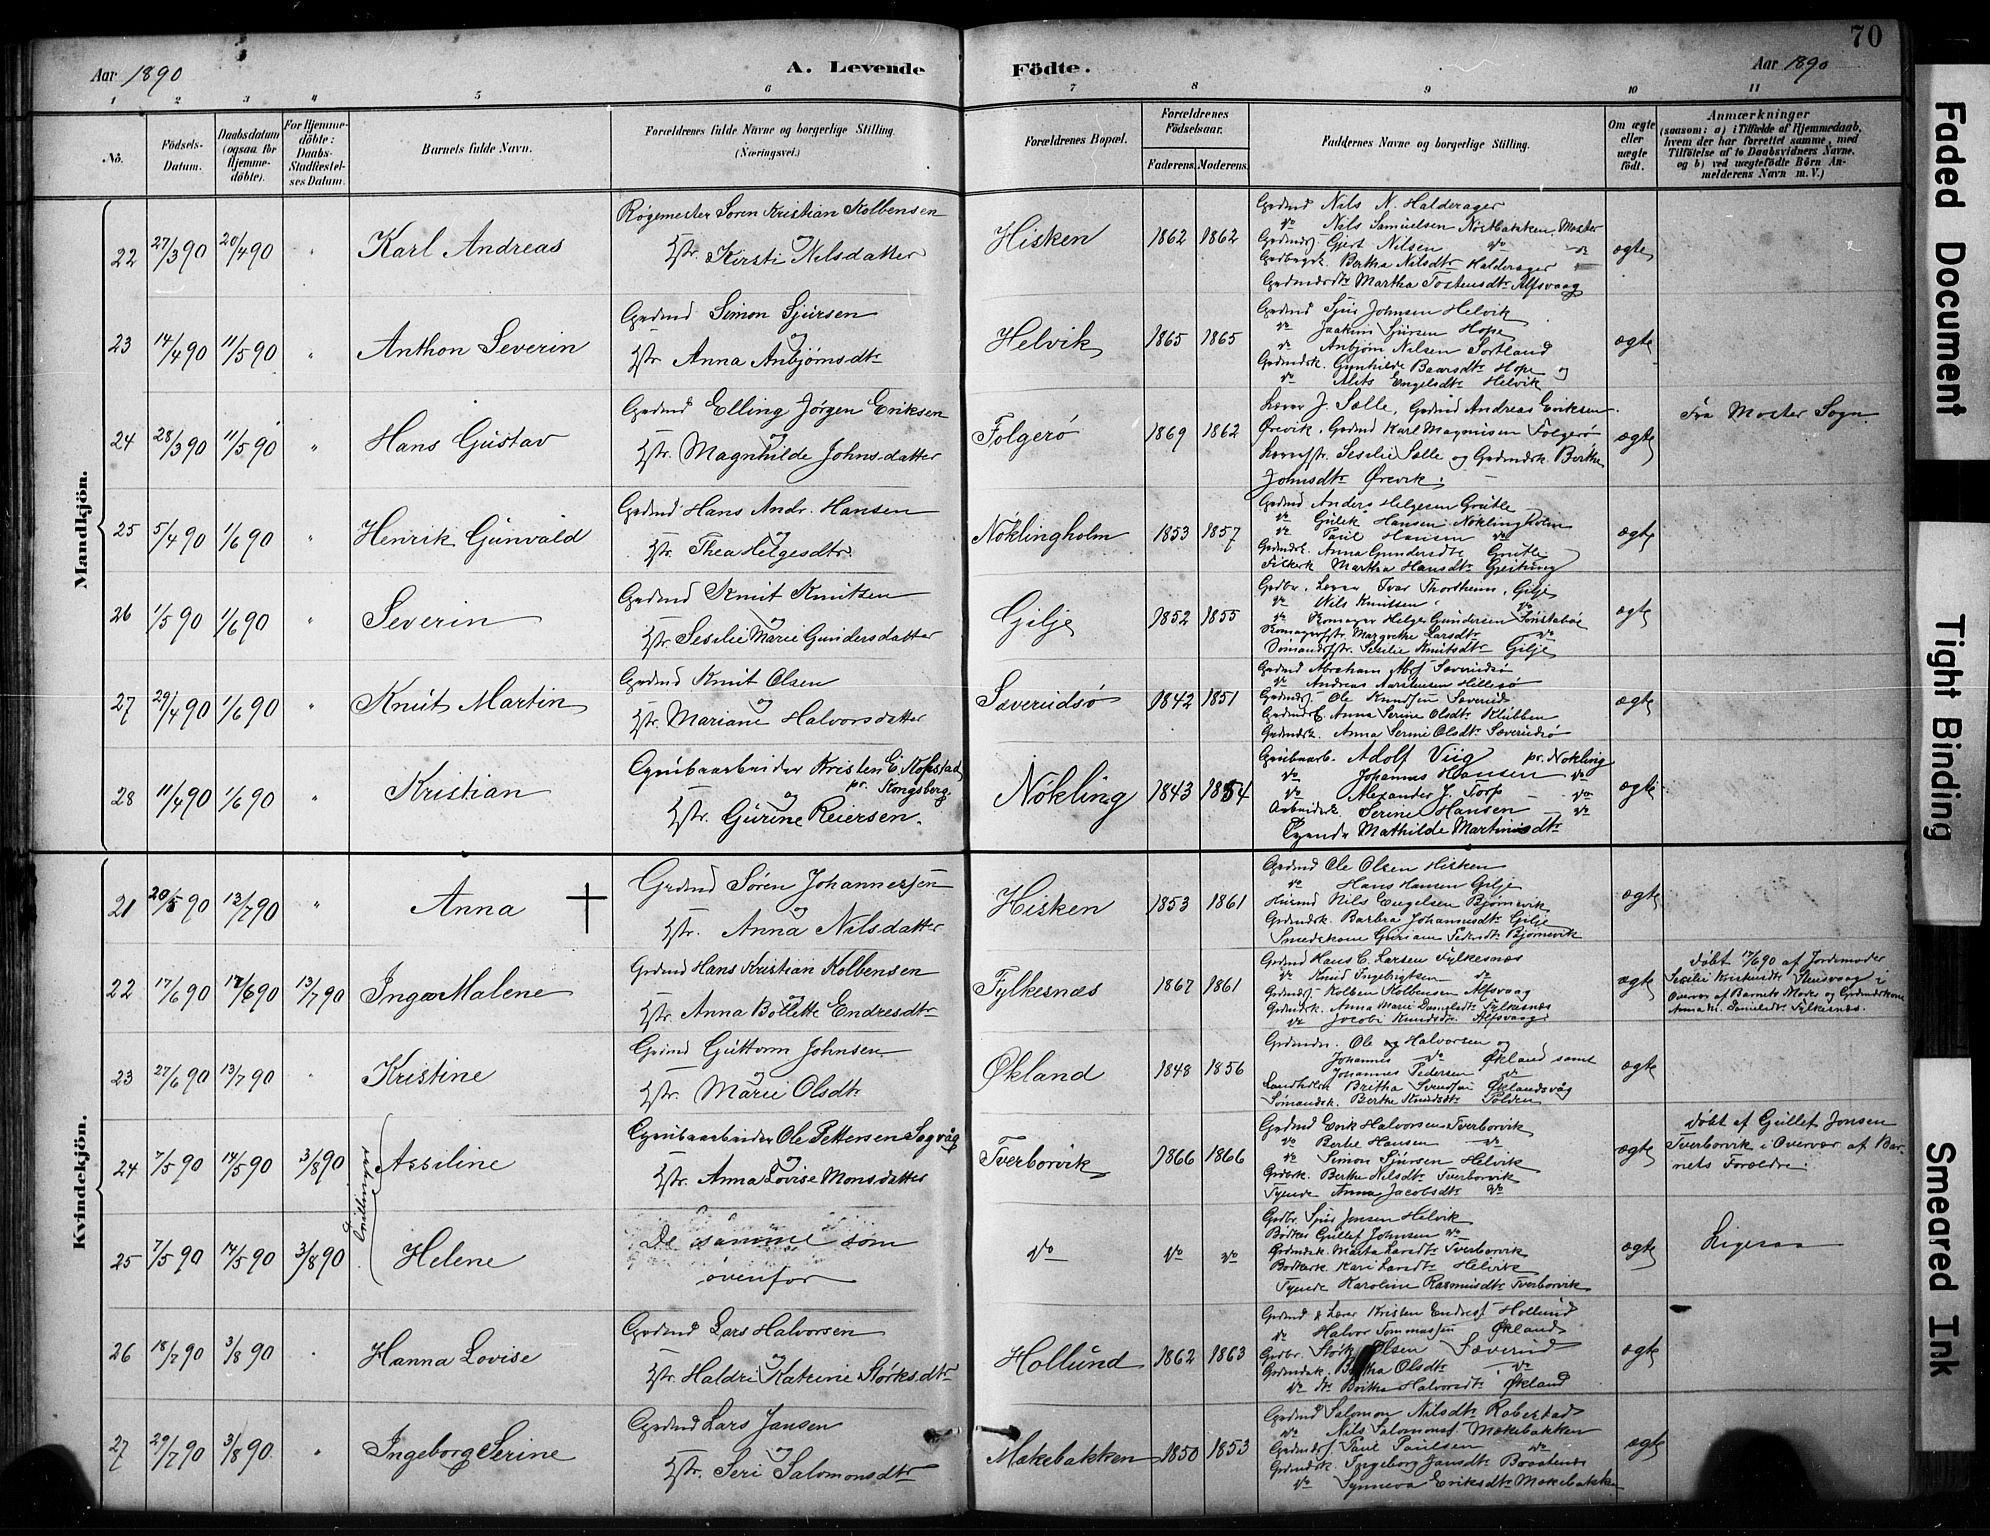 70
Aar 1890
A. Levende Födte.
Aar 1890
1 2 3 4 5 6 7 8 9 10 11
No.
Födsels-Datum.
Daabsdatum (ogsaa for Hjemme-döbte).
For Hjemme-döbte: Daabs-Stadfæstel-ses Datum.
Barnets fulde Navn.
Forældrenes fulde Navne og borgerlige Stilling. (Næringsvei.)
Forældrenes Bopæl.
Forældrenes Födselsaar.
Faderens. Moderens.
Faddernes Navne og borgerlige Stilling.
Om ægte eller uægte født.
Anmærkninger
(saasom: a) i Tilfælde af Hjemmedaab, hvem der har forrettet samme, med Tilföielse af to Daabsvidners Navne, og b) ved uægtefödte Börn An-melderens Navn m. V.)
Mandkjön.
22 27/3 90 20/4 90 " Karl Andreas
Røgemester Søren Kristian Kolbensen
og
Hstr. Kirsti Nilsdatter
Hisken 1862 1862
Grdmd Nils N. Halderager
do Nils Samuelsen Nøstbakken, Moster
Grdmdsj. Gjert Nilsen do do
Bertha Nilsdtr Halderager
Martha Tostensdtr Alfsvaag
ægte
23 14/4 90 11/5 90 " Anthon Severin
Grdmd Simon Sjursen
og
Hstr. Anna Anbjørnsdtr
Helvik 1865 1865
Grdmd Sjur Johnsen Helvik
do Joakim Sjursen Hope
do Anbjørn Nilsen Sortland
Grdmdsk. Gunhilde Baarsdtr Hope og
do Alits Engelsdtr Helvik
ægte
24 28/3 90 11/5 90 " Hans Gustav
Grdmd Elling Jörgen Eriksen
og
Hstr. Magnhilde Johnsdatter
Folgerö 1869 1862
Lærer J. Sælle, Grdmd Andreas Eriksen
Ørevik, Grdmd Karl Magnusen Folgerö
Sesilie Sælle og Grdmdsk. Berthe
Johnsdtr Ørevik.
ægte
Fra Moster Sogn
25 5/4 90 1/6 90 " Henrik Gunvald
Grdmd Hans Andr. Hansen
og
Hstr. Thea Helgesdtr
Nöklingholm 1853 1857
Grdmd Anders Helgesen Grutle
do Gulek Hansen Nøklingholm
do Paul Hansen do
Grdmdsk. Anna Gundersdtr Grutle
Martha Hansdtr Gjeitung
ægte
26 1/5 90 1/6 90 " Severin
Grdmd Knut Knutsen
og
Hstr. Sesilie Marie Gundersdatter
Gilje 1852 1855
Grdbr. Lærer Ivar Thorsheim, Gilje
do Nils Knutsen do
do Helge Gundersen
Margrethe Larsdtr do
Sesilie Knutsdtr Gilje
ægte
27 29/4 90 1/6 90 " Knut Martin
Grdmd Knut Olsen
og
Hstr. Mariane Halvorsdatter
Sæverudsø 1842 1851
Grdmd Abraham Sæverudsø
do Andreas Aarstensen Hillesö
Grdmdsj. Ole Knudsen Sæverud
Anna Serine Olsdtr Klubben
Grdmdsk. Anna Serine Olsdtr Sæverudsø
ægte
28 11/4 90 1/6 90 " Kristian
Grubearbeider Kristen E. Nofstad
pr. Kongsberg.
og
Hstr. Gurine Reiersen.
Nökling 1843 1854
Grubearb. Adolf Viig pr. Nökling
do Johannes Hansen do
do Alexander J. Torp do
Serine Hansen do
Tyende Mathilde Martinisdtr
ægte
Kvindekjön.
21 20/5 90 13/7 90 " Anna †
Grdmd Sören Johannessen
og
Hstr. Anna Nilsdatter
Hisken 1853 1861
Grdmd Ole Olsen Hisken
do Hans Hansen Gilje
Husmd Nils Engelsen Bjørnevik
Grdmdsk. Barbra Johannesdtr Gilje
Smedskone Guriane Pedersdtr Bjørnevik
ægte
22 17/6 90 17/6 90 13/7 90 Inga Malene
Grdmd Hans Kristian Kolbensen
og
Hstr. Anna Bollette Endresdtr
Fylkesnæs 1867 1861
Grdmd Hans C. Larsen Fylkesnæs
do Knud Ingebrigtsen do
Grdmdsj. Kolben Kolbensen Alfsvaag
Grdmdsk. Anna Marie Danielsdtr Fylkesnæs
do Jacobi Knudsdtr Alfsvaag
ægte
Døbt 17/6 90 af Jordemoder
Sesilie i
Overvær af Barnets Moder og Grdmdskone
Anna M. Danielsdtr Fylkesnæs.
23 27/6 90 13/7 90 " Kristine
Grdmd Guttorm Johnsen
og
Hstr. Marie Olsdtr
Økland 1848 1856
Grdmdsj. Ole Halvorsen og
Johannes do Økland samt
Johannes Pedersen do
Britha Økl andsvåg
Sømandsk. Berthe Knudsdtr Polden
ægte
24 7/5 90 14/5 90 3/8 90 Assiline
Tvillinger
Grubearbeider Ole Pettersen Sagvåg
og
Hstr. Anna Lovise Monsdatter
Tverborvik 1866 1866
Grdmd Erik Halvorsen Tverborvik
do Berte Hansen do
do Simon Sjursen Helvik
Berthe Nilsdtr Tverborvik
Tyende Anna Jacobsdtr do
ægte
Döbt af Gullet Jonsen
Tverborvik i Overvær af Bar-
nets Forældre.
25 7/5 90 14/5 90 3/8 90 Helene
De samme som
ovenfor
do do do
Grdbr. Sjur Jonsen Helvik
Bødker Gullet Johnsen do
Grdmdsk. Marta Larsdtr Tverborvik
Kari Larsdtr Helvik
Tyende Karoline Rasmusdtr Tverborvik
ægte
Ligesaa
26 18/7 90 3/8 90 " Hanna Lovise
Grdmd Lars Halvorsen
og
Hstr. Haldri Katrine Størksdtr
Hollund 1862 1863
Grdmd & Lærer Kristen Endres. Hollund
do Halvor Tommassen Økland
Grdbr. Størk Olsen Sæverud
Grdmdsk. Olsdtr do
do Britha Halvorsdtr Økland
ægte
27 29/7 90 3/8 90 " Ingeborg Serine
Grdmd Lars Jansen
og
Hstr. Seri Salomonsdtr
Mækebakken 1850 1853
Grdmd Salomon Nilsdtr Robestad
do Nils Salomons. Mækebakken
Grdmdsj. Paul Paulsen do
Grdmdsk. Ingeborg Jansdtr
do Synneva Eriksdtr Mækebakken
ægte
Faded Document
Tight Binding
Smeared Ink